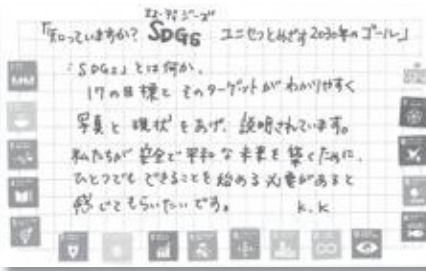 エス・ディ・ジーズ
「知っていますか? SDGs ユニセフとめざす2030年のゴール」
「SDGs」とは何か、
17の目標と そのターゲットが わかりやすく
写真と 現状をあげ、説明されています。
私たちが 安全で平和な 未来を 築くために、
ひとつでも できることを 始める 必要があると
感じてもらいたいです。 K.K